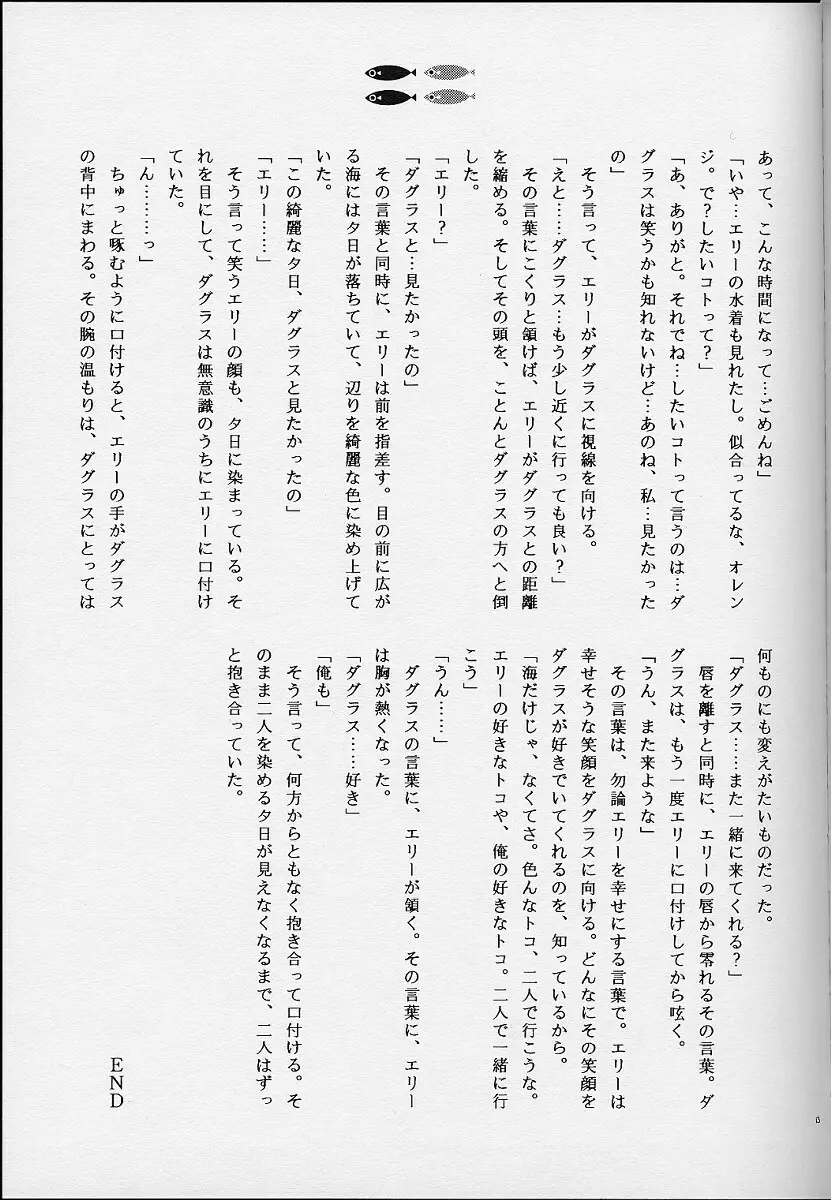 あって、こんな時間になって…ごめんね」
「いや…エリーの水着も見れたし。似合ってるな、オレン
ジ。で？したいコトって？」
「あ、ありがと。それでね…したいコトって言うのは…ダ
グラスは笑うかも知れないけど…あのね、私…見たかった
の」
　そう言って、エリーがダグラスに視線を向ける。
「えと……ダグラス…もう少し近くに行っても良い？」
　その言葉にこくりと頷けば、エリーがダグラスとの距離
を縮める。そしてその頭を、ことんとダグラスの方へと倒
した。
「エリー？」
「ダグラスと…見たかったの」
　その言葉と同時に、エリーは前を指差す。目の前に広が
る海には夕日が落ちていて、辺りを綺麗な色に染め上げて
いた。
「この綺麗な夕日、ダグラスと見たかったの」
「エリー……」
　そう言って笑うエリーの顔も、夕日に染まっている。そ
れを目にして、ダグラスは無意識のうちにエリーに口付け
ていた。
「ん………っ」
　ちゅっと啄むように口付けると、エリーの手がダグラス
の背中にまわる。その腕の温もりは、ダグラスにとっては
何ものにも変えがたいものだった。
「ダグラス……また一緒に来てくれる？」
　唇を離すと同時に、エリーの唇から零れるその言葉。ダ
グラスは、もう一度エリーに口付けしてから呟く。
「うん、また来ような」
　その言葉は、勿論エリーを幸せにする言葉で。エリーは
幸せそうな笑顔をダグラスに向ける。どんなにその笑顔を
ダグラスが好きでいてくれるのを、知っているから。
「海だけじゃ、なくてさ。色んなトコ、二人で行こうな。
エリーの好きなトコや、俺の好きなトコ。二人で一緒に行
こう」
「うん……」
　ダグラスの言葉に、エリーが頷く。その言葉に、エリー
は胸が熱くなった。
「ダグラス……好き」
「俺も」
　そう言って、何方からともなく抱き合って口付ける。そ
のまま二人を染める夕日が見えなくなるまで、二人はずっ
と抱き合っていた。
END